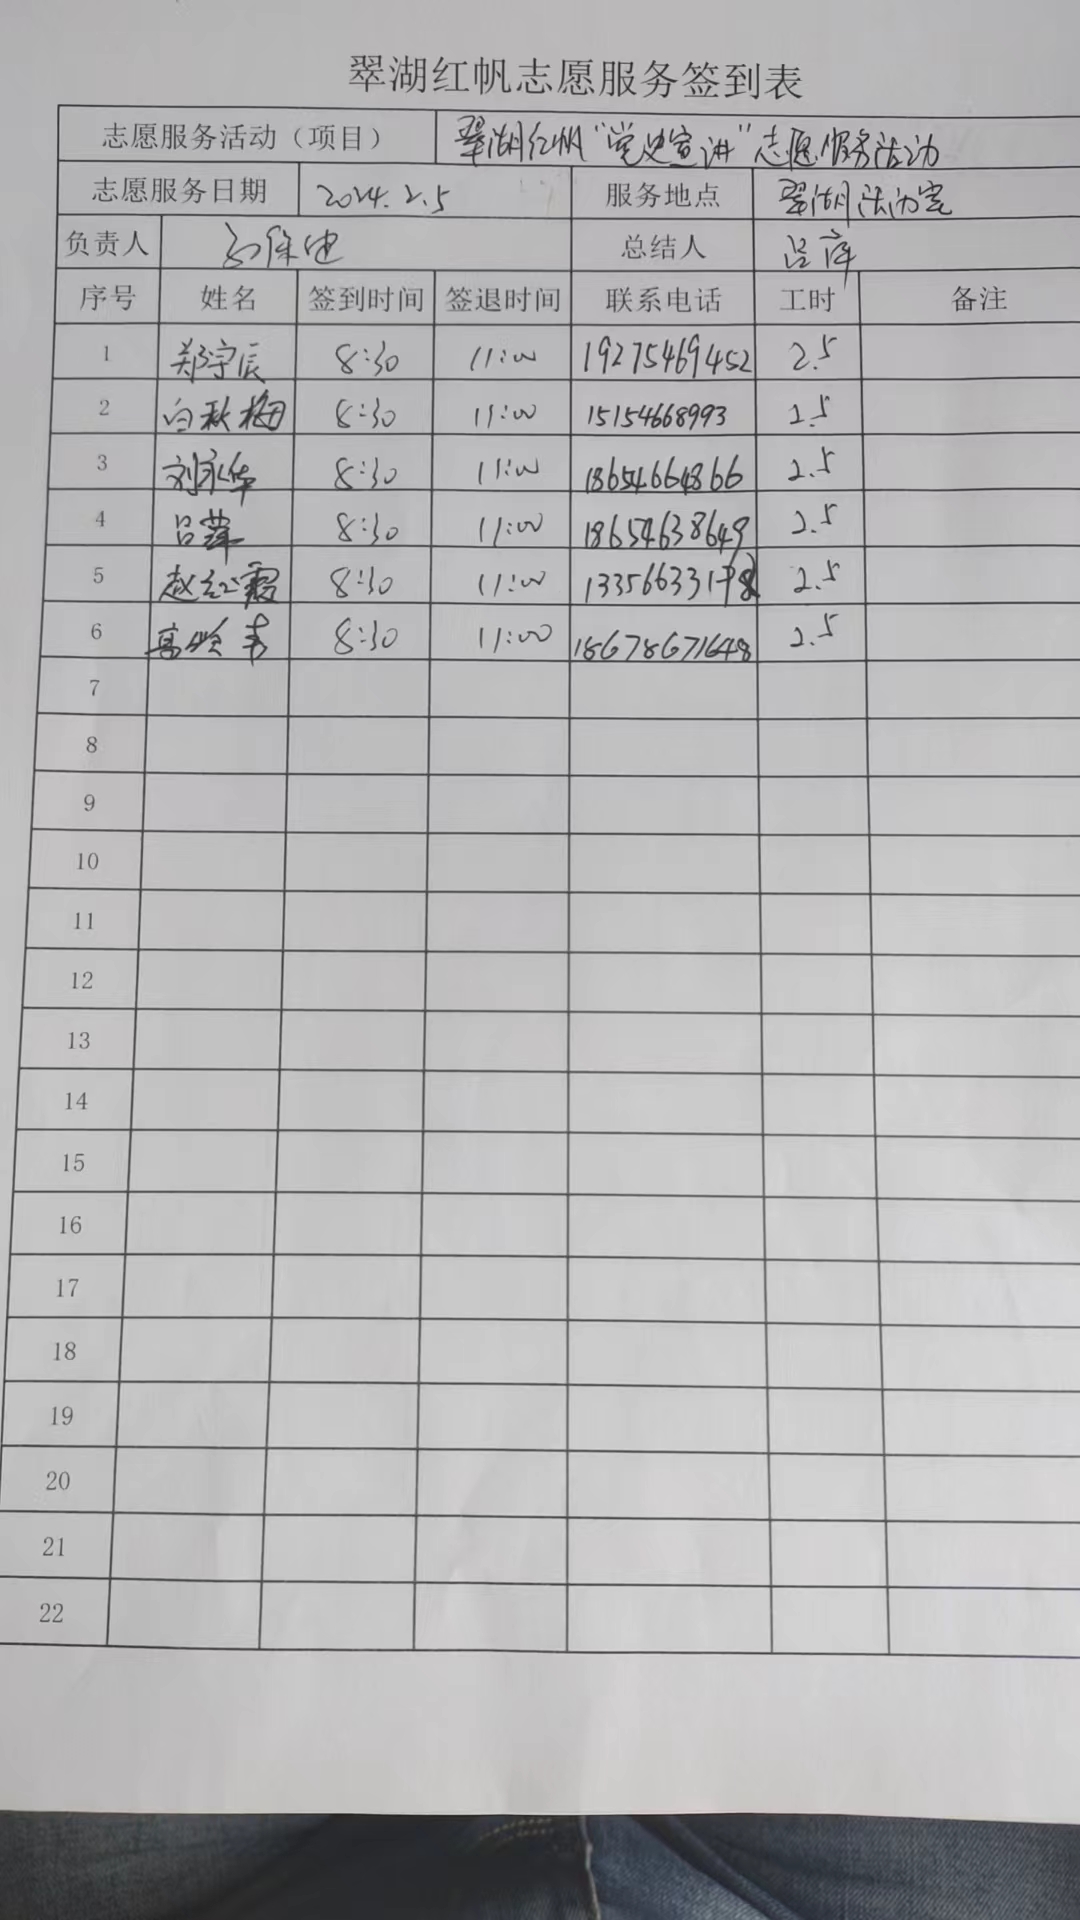 翠湖红帆志愿服务签到表
志愿服务活动（项目） 翠湖红帆“党史宣讲”志愿服务活动
志愿服务日期 2024.2.5 服务地点 翠湖活动室
负责人 总结人 吕萍
序号 姓名 签到时间 签退时间 联系电话 工时 备注
1 郑宇辰 8:30 11:00 19275469452 2.5
2 白秋梅 8:30 11:00 15154668993 2.5
3 刘永华 8:30 11:00 18654664866 2.5
4 吕萍 8:30 11:00 18654638649 2.5
5 赵红霞 8:30 11:00 2.5
6 8:30 11:00 18678671648 2.5
7
8
9
10
11
12
13
14
15
16
17
18
19
20
21
22